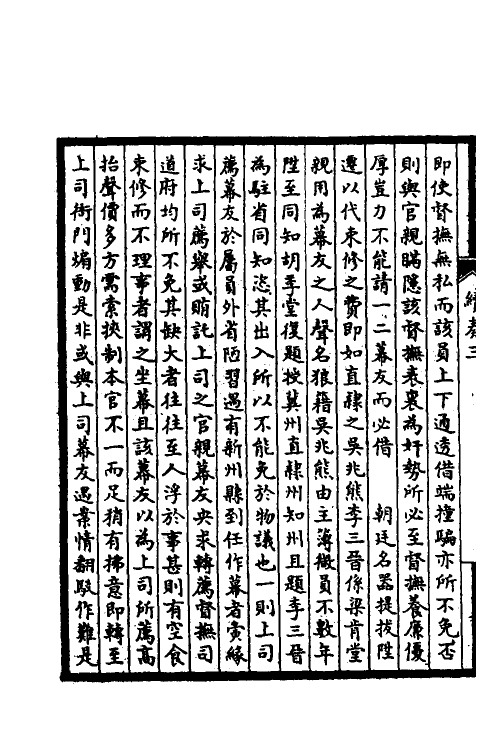 即使督撫無私而該員上下通透借端撞騙亦所不免否
則與官親瞞隱該督撫表裏為奸勢所必至督撫養廉優
厚豈力不能請一二幕友而必借 朝廷名器提拔陞
遷以代束修之費即如直隸之吳兆熊李三晉係梁肯堂
親用為幕友之人聲名狼藉吳兆熊由主簿微員不數年
陞至同知胡季堂復題授冀州直隸州知州且題李三晉
為駐省同知恣其出入所以不能免於物議也一則上司
薦幕友於屬員外省陋習遇有新州縣到任作幕者夤緣
求上司薦舉或賄託上司之官親幕友央求轉薦督撫司
道府均所不免其缺大者往往至人浮於事甚則有空食
束修而不理事者謂之坐幕且該幕友以為上司所薦高
抬聲價多方需索挾制本官不一而足稍有拂意即轉至
上司衙門煽動是非或與上司幕友遇案情翻駁作難是